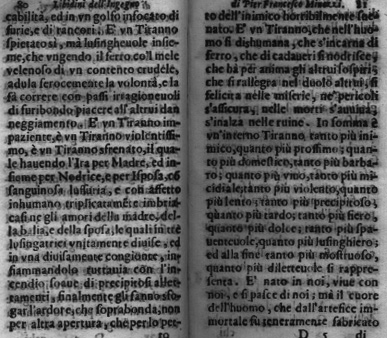 80 Libidini dell'Ingegno
cabilità, ed in vn golfo infocato di
furie, e di rancori. E' vn Tiranno
spietato sì, mà lusingheuole insie-
me, che vngendo il ferro col mele
velenoso di vn contento crudele,
adula ferocemente la volontà, e la
fà correre con passi irragioneuoli
di furibondo piacere all'altrui dan
neggiamento. E' vn Tiranno im-
paziente, è vn Tiranno violentissi-
mo, è vn Tiranno sfrenato, il qua-
le hauendo l'Ira per Madre, ed in-
sieme per Nodrice, e per Isposa, cō
sanguinosa lussuria, e con affetto
inhumano triplicatamēte imbria-
casi ne gli amori della madre, del-
la balia, e della sposa, le quali in trè
lusingatrici vnitamente diuise, ed
in vna diuisamente congionte, in-
fiammandolo tuttauia con l'in-
cendio soaue di precipitosi allet-
tamenti, finalmente gli fanno sfo-
gar l'ardore, che soprabonda, non
per altra apertura, che per lo pet-
to
di Pier Francesco Minozzi. 81
to dell'inimico horribilmente sue-
nato. E' vn Tiranno, che nell'huo-
mo si dishumana, che s'incarna di
ferro, che di cadaueri si nodrisce,
che hà per anima gli altrui sospiri,
che si rallegra nel duolo altrui, si
felicita nelle miserie, ne' pericoli
s'assicura, nelle morti s'auuiua,
s'inalza nelle ruine. In somma è
vn'interno Tiranno, tanto più ini-
mico, quanto più prossimo; quan-
to più domestico, tanto più barba-
ro; quanto più vnto, tanto più mi-
cidiale; tanto più violento, quanto
più lento; tanto più precipitoso,
quanto più tardo; tanto più fiero,
quanto più dolce; tanto più spa-
uenteuole, quanto più lusinghiero;
ed alla fine tanto più mostruoso,
quanto più diletteuole si rappre-
senta. E' nato in noi, viue con
noi, e si pasce di noi; mà il cuore
dell'huomo, che dall'artefice im-
mortale fù teneramente fabricato
D 5 di